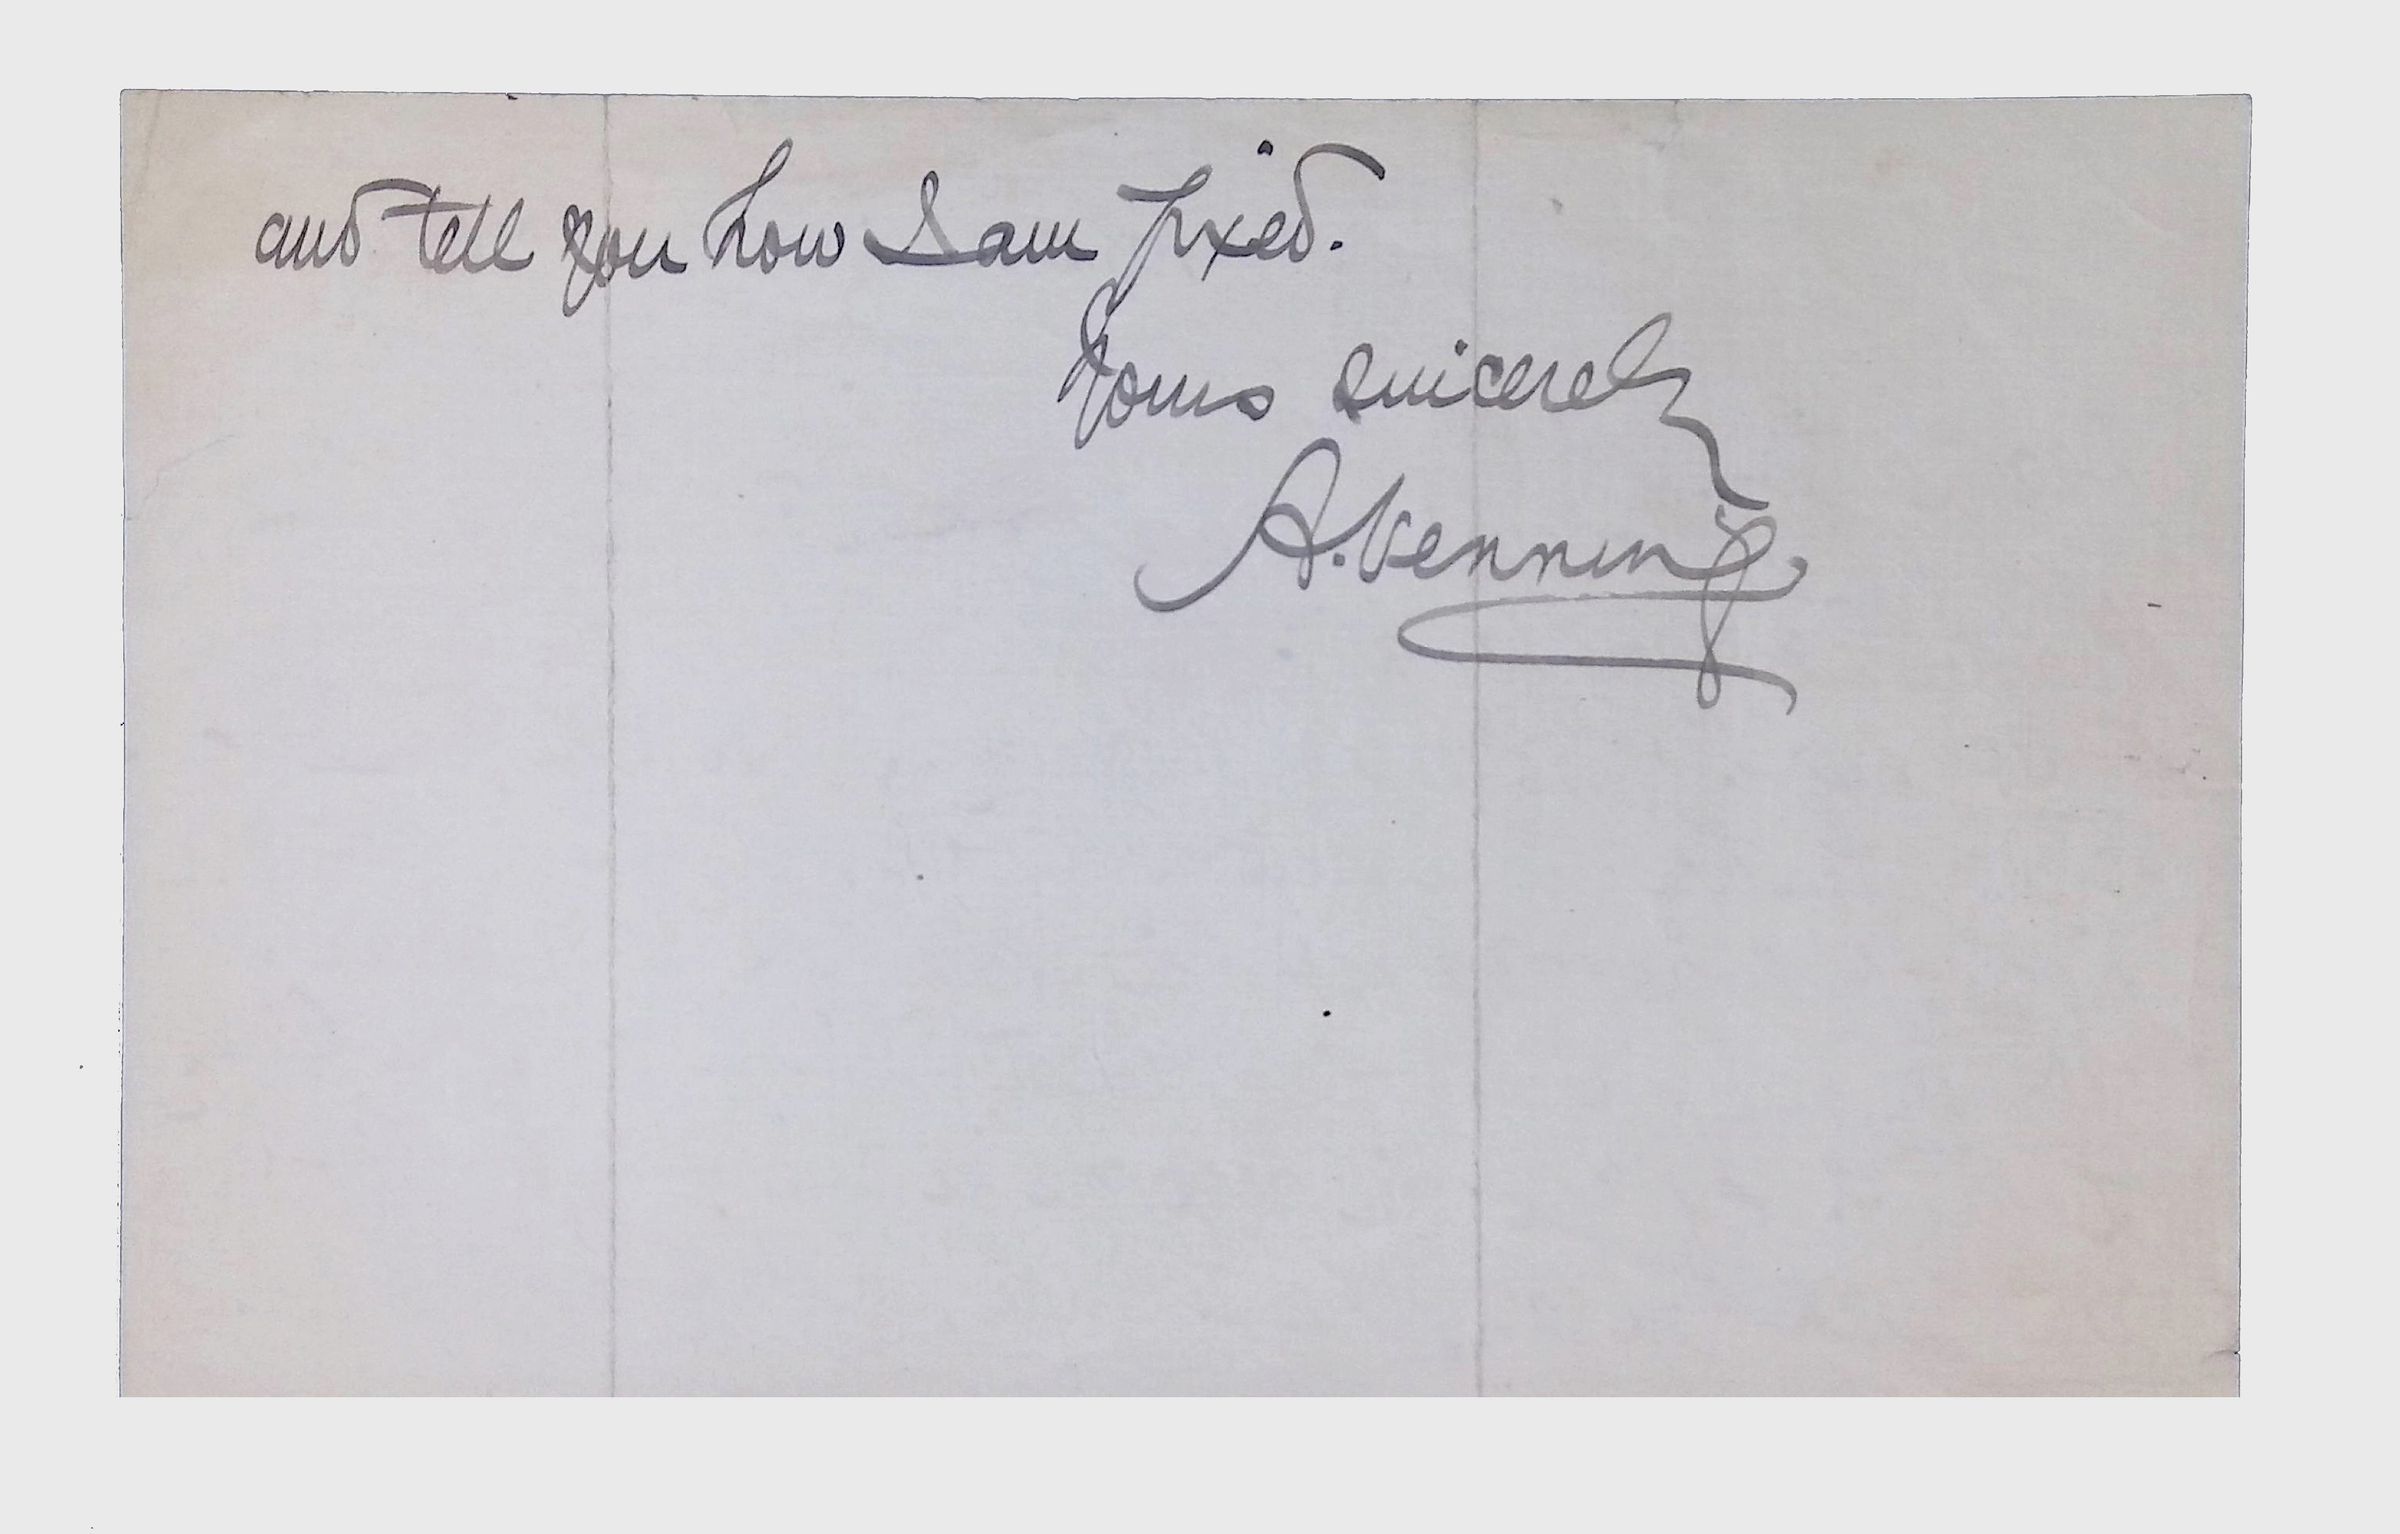 and tell you how I am fixed.
Yours sincerely
A. Venning